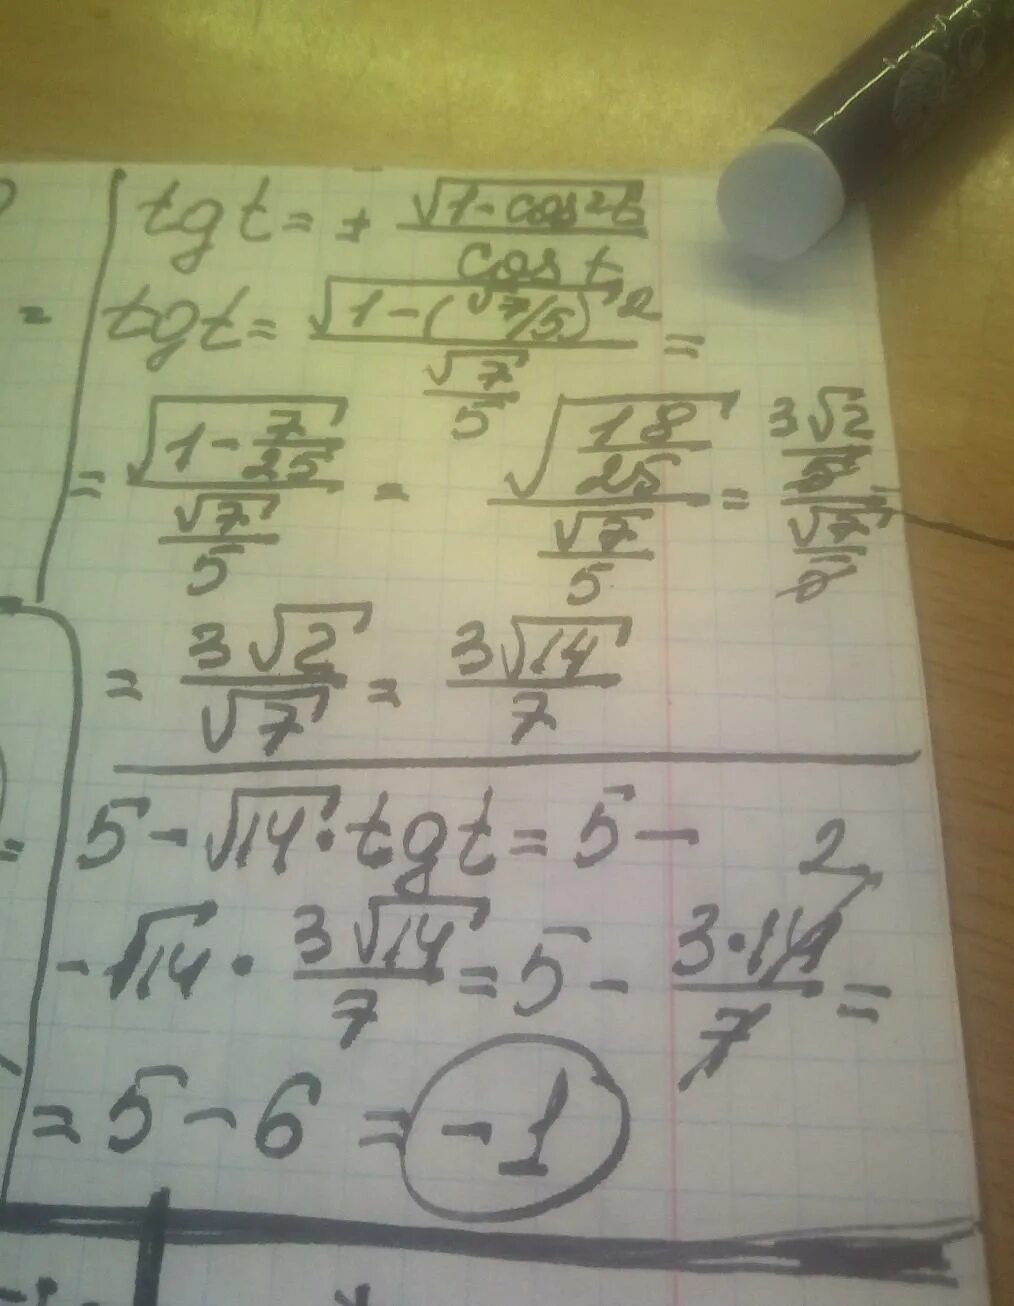 tg t = ± √(1-cos²t) / cos t
= tg t = √(1-(√7/5)²) / (√7/5) =
= √(1-7/25) / (√7/5) = √(18/25) / (√7/5) = (3√2/5) / (√7/5)
= 3√2/√7 = 3√14/7
= 5-√14·tg t = 5-
-√14 · 3√14/7 = 5 - 3·14/7 =
2
= 5-6 = -1